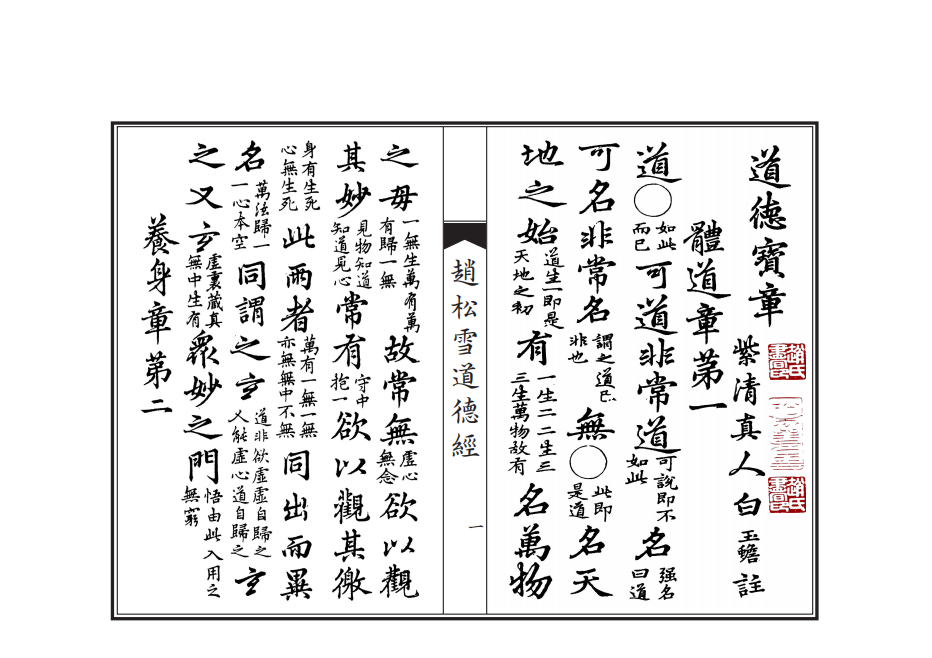 道德寶章
紫清真人白玉蟾註
體道章第一
道〇如此而已可道非常道可說即不如此名强名曰道
可名非常名謂之道已非也無〇此即是道名天
地之始道生一即是天地之初有一生二二生三三生萬物故有名萬物
趙松雪道德經
一
之母一無生萬有萬有歸一無故常無虛心無念欲以觀
其妙見物知道知道見心常有守中抱一欲以觀其徼
身有生死心無生死此兩者萬有一無一無亦無無中不無同出而異
名萬法歸一一心本空同謂之玄道非欲虛虛自歸之人能虛心道自歸之玄
之又玄虛裏藏真無中生有眾妙之門悟由此入用之無窮
養身章第二